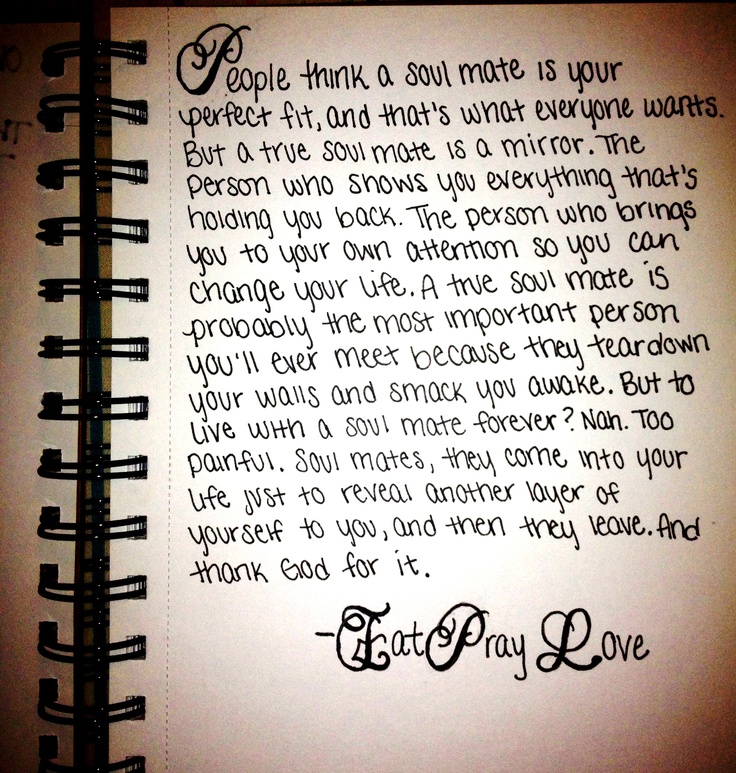 People think a soul mate is your
perfect fit, and that's what everyone wants.
But a true soul mate is a mirror. The
person who shows you everything that's
holding you back. The person who brings
you to your own attention so you can
change your life. A true soul mate is
probably the most important person
you'll ever meet because they tear down
your walls and smack you awake. But to
live with a soul mate forever? Nah. Too
painful. Soul mates, they come into your
life just to reveal another layer of
yourself to you, and then they leave. And
thank God for it.
-Eat Pray Love